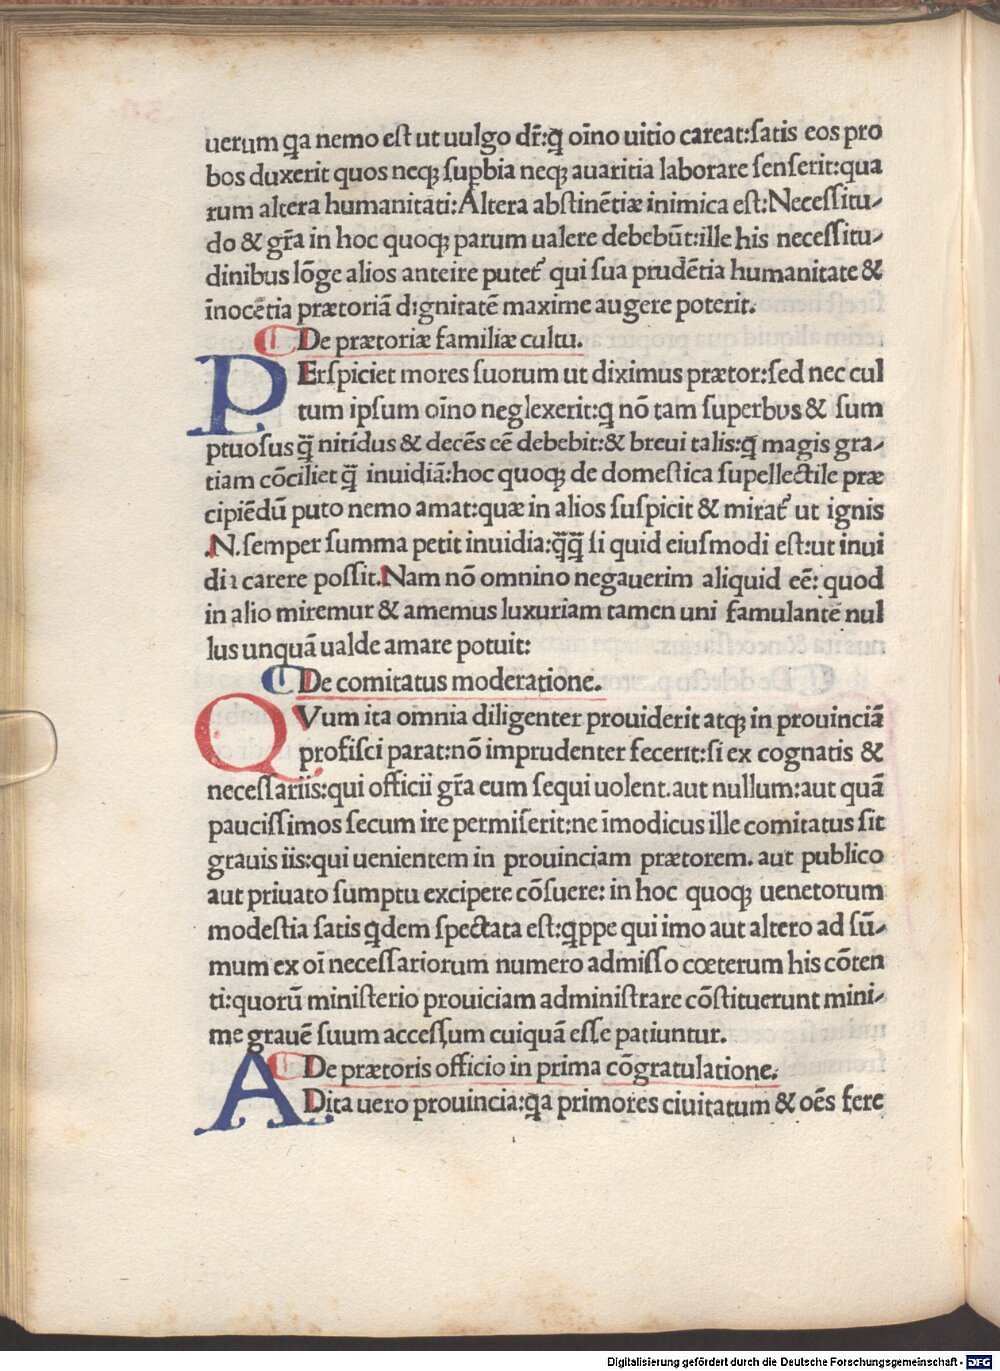 uerum qa nemo eſt ut uulgo dr̄:q̄ oīno uitio careat:ſatis eos pro
bos duxerit quos neqꝫ ſuꝑbia neqꝫ auaritia laborare ſenſerit:qua
rum altera humanitati:Altera abſtinētiæ inimica eſt:Neceſſitu-
do & gr̄a in hoc quoqꝫ parum ualere debebūt:ille his neceſſitu-
dinibus lōge alios anteire putet᷑ qui ſua prudētia humanitate &
īnocētia prætoriā dignitatē maxime augere poterit.
De prætoriæ familiæ cultu.
PErſpiciet mores ſuorum ut diximus prætor:ſed nec cul
tum ipſum oīno neglexerit:q nō tam ſuperbus & ſum
ptuoſus q̄ nitidus & decēs eē debebit:& breui talis:q̄ magis gra-
tiam cōciliet q̄ inuidiā:hoc quoqꝫ de domeſtica ſupellectile præ
cipiēdū puto nemo amat:quæ in alios ſuſpicit & mirat᷑ ut ignis
.N.ſemper ſumma petit inuidia:q̄q̄ ſi quid eiuſmodi eſt:ut inui
dia carere poſſit.Nam nō omnino negauerim aliquid eē: quod
in alio miremur & amemus luxuriam tamen uni famulantē nul
lus unquā ualde amare potuit:
De comitatus moderatione.
QVum ita omnia diligenter prouiderit atqꝫ in prouinciā
profiſci parat:nō imprudenter fecerit:ſi ex cognatis &
neceſſariis:qui officii gr̄a eum ſequi uolent.aut nullum:aut quā
pauciſſimos ſecum ire permiſerit:ne īmodicus ille comitatus ſit
grauis iis:qui uenientem in prouinciam prætorem. aut publico
aut priuato ſumptu excipere cōſuere: in hoc quoqꝫ uenetorum
modeſtia ſatis qdem ſpectata eſt:qppe qui imo aut altero ad ſū-
mum ex oī neceſſariorum numero admiſſo cœterum his cōten
ti:quorū miniſterio prouiciam adminiſtrare cōſtituerunt mini-
me grauē ſuum acceſſum cuiquā eſſe patiuntur.
De prætoris officio in prima cōgratulatione.
ADita uero prouincia:qa primores ciuitatum & oēs fere
Digitalisierung gefördert durch die Deutsche Forschungsgemeinschaft - DFG